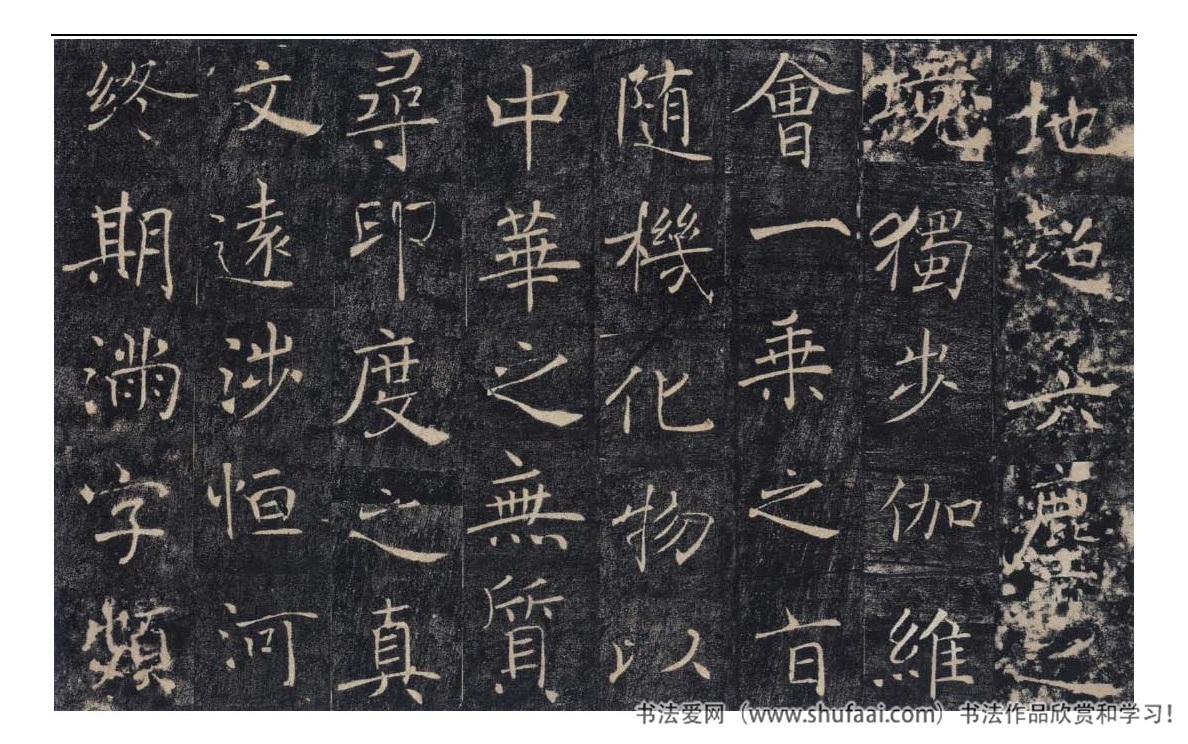 地超六塵之
境獨步伽維
會一乗之旨
随機化物以
中華之無質
尋印度之真
文遠涉恒河
終期滿字頻
书法爱网（www.shufaai.com）书法作品欣赏和学习！